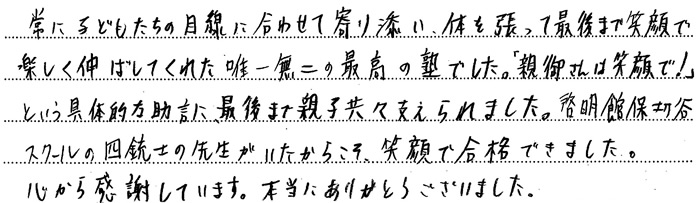 常に子どもたちの目線に合わせて寄り添い、体を張って最後まで笑顔で
楽しく伸ばしてくれた唯一無二の最高の塾でした。「親御さんは笑顔で!」
という具体的な助言に、最後まで親子共々支えられました。啓明館保土ヶ谷
スクールの四銃士の先生がいたからこそ、笑顔で合格できました。
心から感謝しています。本当にありがとうございました。